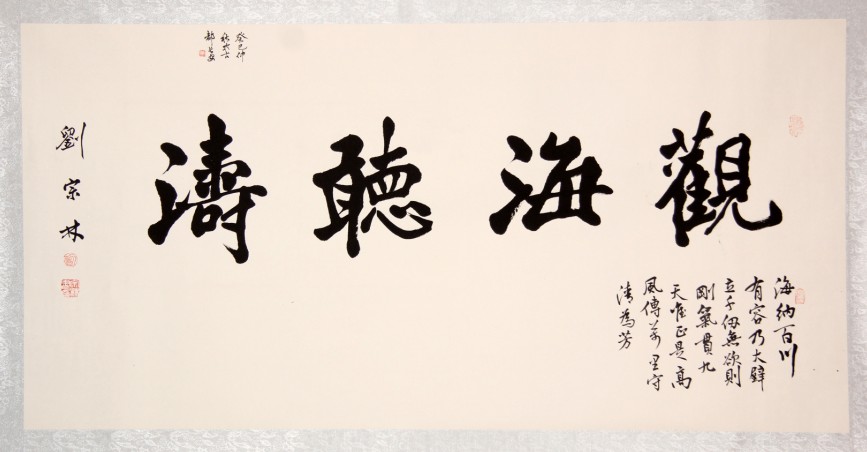 觀海聽濤
海納百川
有容乃大壁
立千仞無欲則
剛氣貫九
天唯正是高
風傳萬里守
清為芳
癸巳仲
劉宗林